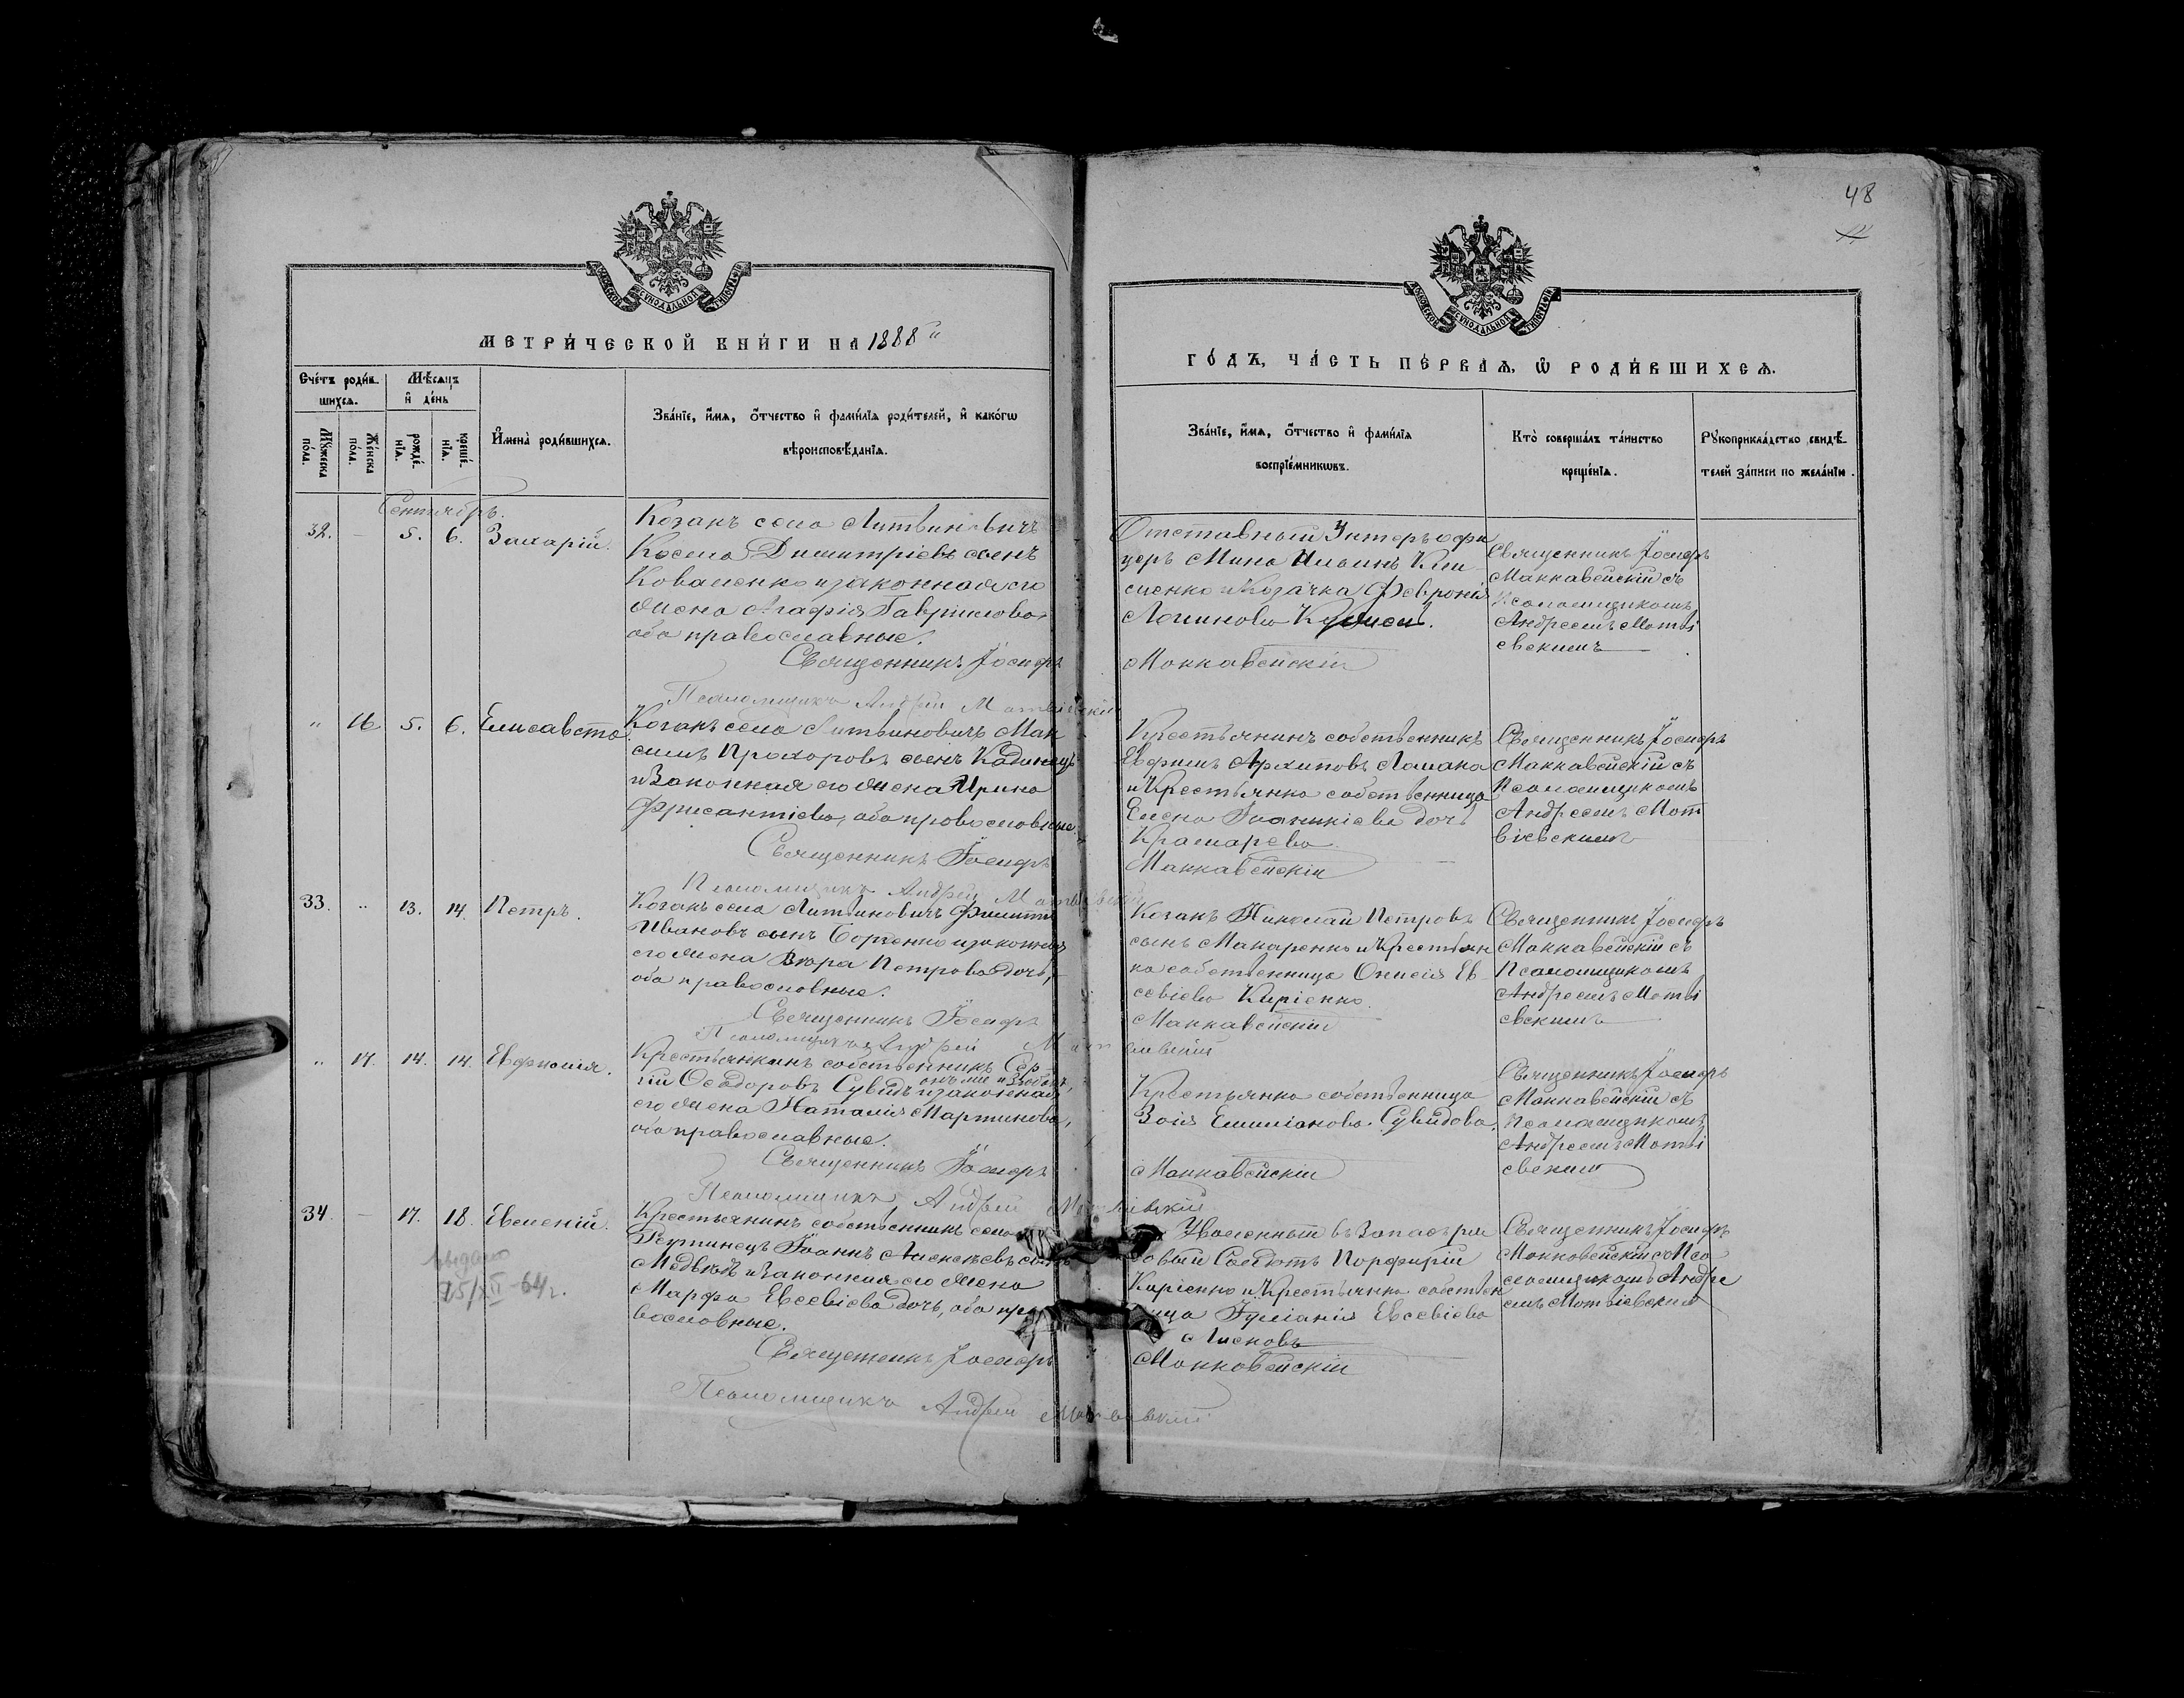 48
МЕТРИ́ЧЕСКОЙ КНИ́ГИ НА 1888
ГО́ДЪ, ЧА́СТЬ ПЕ́РВАЯ, Ѡ РОДИ́ВШИХСЯ.
Сче́тъ роди́в-
шихся.
Мѣ́сяцъ
и҆ де́нь
Мꙋ́жеска
по́ла.
Же́нска
по́ла.
рожде́-
нїѧ.
креще́-
нїѧ.
И҆мена̀ роди́вшихсѧ.
Зва́нїе, и҆́мѧ, ѻ҆́тчество и҆ фами́лїѧ роди́телей, и҆ како́гѡ
вѣроисповѣ́данїѧ.
Зва́нїе, и҆́мѧ, ѻ҆́тчество и҆ фами́лїѧ
воспрїе́мникѡвъ.
Кто̀ соверша́лъ та́инство
креще́нїѧ.
Рꙋкоприкла́дство свидѣ́-
телей за́писи по жела́нїю.
Сентябрь.
32. – 5. 6. Захарій.
Козакъ села Литвиновичъ
Косма Димитріевъ сынъ
Коваленко и законная его
жена Агафія Гаврилова,
оба православные.
Священникъ Іосифъ
Маккавейскій
Псаломщикъ Андрей Матвіевскій
Отставный Унтеръ офи
церъ Мина Ильинъ
сиенко и Козачка Февронія
Логинова
Священникъ Іосифъ
Маккавейскій съ
Псаломщикомъ
Андреемъ Матві
евскимъ
" 16. 5. 6. Елисавета
Козакъ села Литвиновичъ Мак
симъ Прохоровъ сынъ Кадинецъ
и Законная его жена Ирина
Фрисантіева, оба православные.
Священникъ Іосифъ
Маккавейскій
Псаломщикъ Андрей Матвіевскій
Крестьянинъ собственникъ
Евфимъ Архиповъ Ломака
и Крестьянка собственница
Елена Іоаникіева дочь
Крамарева.
Священникъ Іосифъ
Маккавейскій съ
Псаломщикомъ
Андреемъ Мат
віевскимъ
33. " 13. 14. Петръ.
Козакъ села Литвиновичъ Филиппъ
Ивановъ сынъ Борченко и законная
его жена Вѣра Петрова дочь,
оба православные.
Священникъ Іосифъ
Маккавейскій
Псаломщикъ Андрей Матвіевскій
Козакъ Николай Петровъ
сынъ Макаренко и Крестьян
ка собственница Онисія Ев
севіева Киріенко.
Священникъ Іосифъ
Маккавейскій съ
Псаломщикомъ
Андреемъ Матві
евскимъ
" 17. 14. 14. Евфимія.
Крестьянинъ собственникъ Сер-
гій Ѳеодоровъ Сувидъ и законная
его жена Наталія Мартинова,
оба православные.
Священникъ Іосифъ
Маккавейскій
Псаломщикъ Андрей Матвіевскій
Крестьянка собственница
Зоія Емиліанова Сувидова.
Священникъ Іосифъ
Маккавейскій съ
Псаломщикомъ
Андреемъ Матві
евским
34. – 17. 18. Евмений.
выдано
25/XII-64г.
Крестьянинъ собственникъ села
Реутинецъ Іоаннъ Алексѣевъ сынъ
Медвѣдь и Законная его жена
Марфа Евсевіева дочь, оба пра
вославные.
Священникъ Іосифъ
Маккавейскій
Псаломщикъ Андрей Матвіевскій
Уволенный въ Запасъ ря
довый Солдатъ Порфирій
Киріенко и Крестьянка собствен
ница Іуліанія Евсевіева
Священникъ Іосифъ
Маккавейскій съ Пса
ломщикомъ Андре
емъ Матвіевским